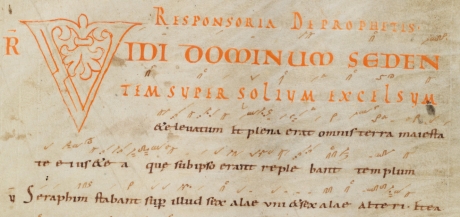 RESPONSORIA DE PROPHETIS
R VIDI DOMINUM SEDEN
TEM SUPER SOLIUM EXCELSUM
& elevatum Et plena erat omnis terra maiesta
te eius & ea que sub ipso erant reple bant templum
V Seraphim stabant sup illud sex alae uni & sex alae alteri. Et ea